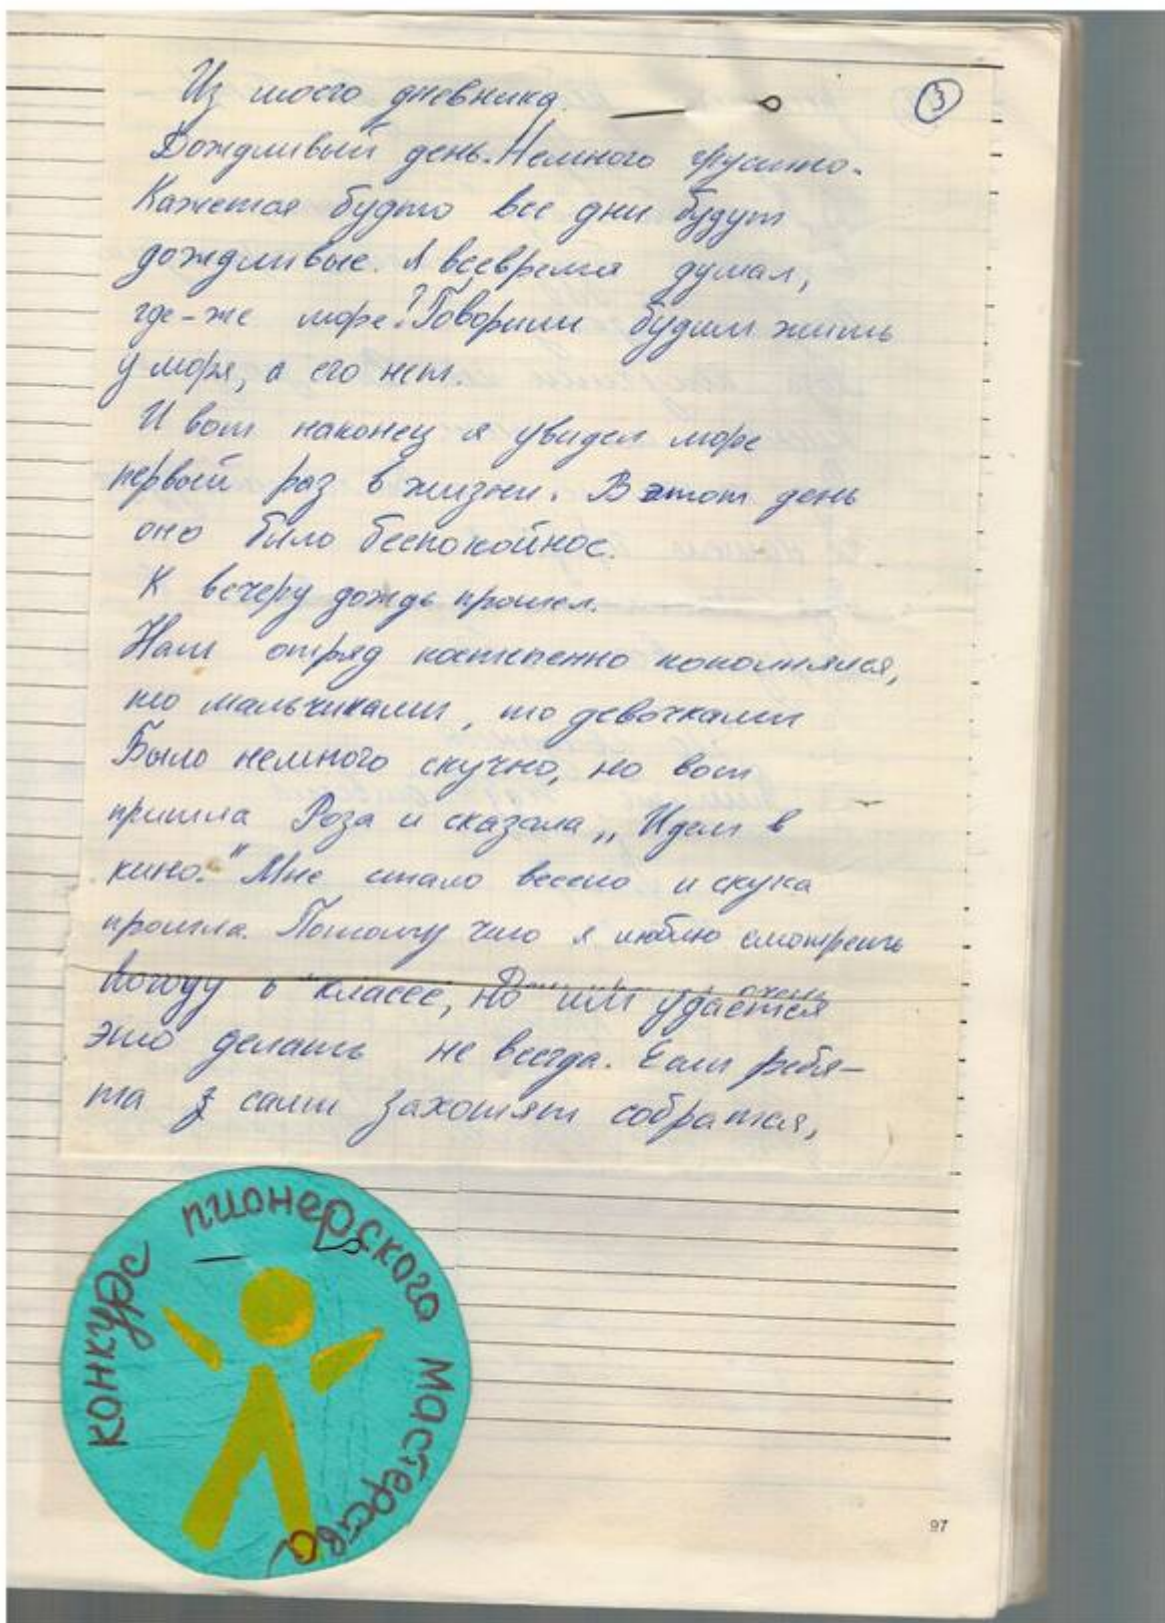 Из моего дневника.
③
Дождливый день. Немного грустно.
Кажется будто все дни будут
дождливые. Я всевремя думал,
где-же море? Говорили будим жить
у моря, а его нет.
И вот наконец я увидел море
первый раз в жизни. В этот день
оно было беспокойное.
К вечеру дождь прошел.
Наш отряд постепенно пополнялся,
то мальчиками, то девочками
Было немного скучно, но вот
пришла Роза и сказала „Идем в
кино." Мне стало весело и скука
прошла. Потому что я люблю смотреть
погоду в классе, но им удается
это делать не всегда. Если ребя-
та сами захотят собратся,
конкурс пионерского мастерства
97